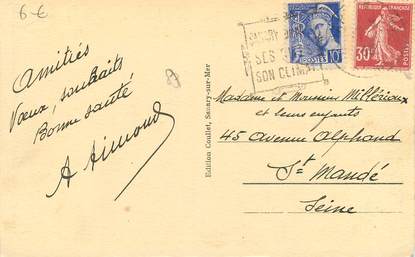 6-€
Amitiés
Voeux, souhaits
Bonne santé
A Aimond
83
Edition Coullet, Sanary-sur-Mer
SANARY
SES
SON CLIMAT
POSTES 10c
30c
POSTES
Madame et Monsieur Millérioux
et leurs enfants
45 Avenue Alphand
St Mandé
Seine